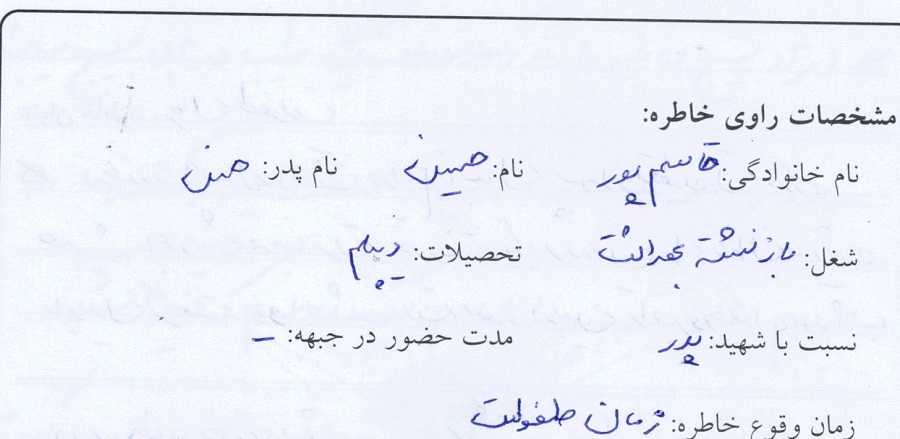 مشخصات راوی خاطره:
نام خانوادگی: قاسم پور نام: حسین نام پدر: حسن
شغل: بازنشسته بهداشت تحصیلات: دیپلم
نسبت با شهید: پدر مدت حضور در جبهه: –
زمان وقوع خاطره: زمان طفولیت